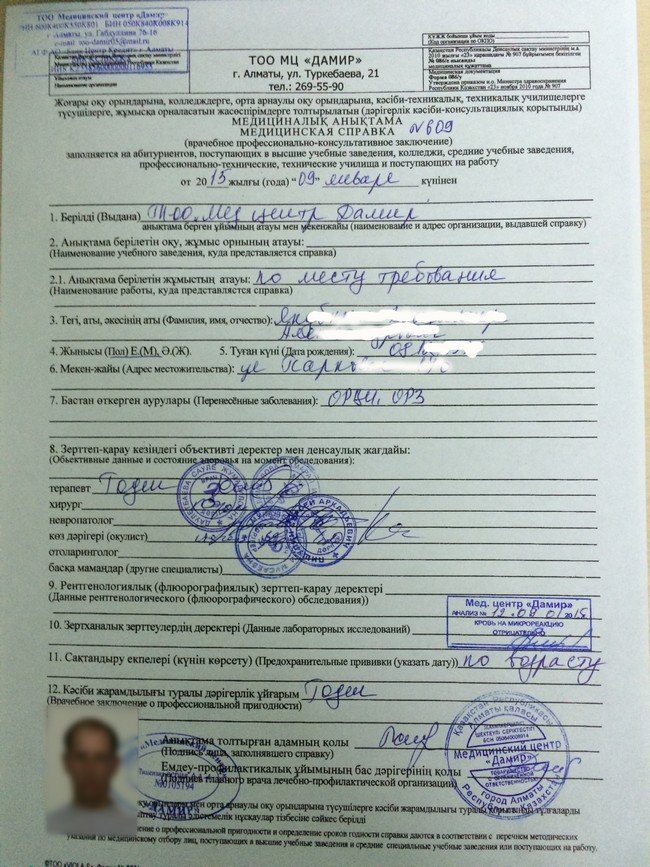 ТОО Медицинский центр «Дамир»
г. Алматы, ул. Габдуллина 76-16
Ұйымның атауы
Наименование организации
ТОО МЦ «ДАМИР»
г. Алматы, ул. Туркебаева, 21
тел.: 269-55-90
КҰЖЖ бойынша ұйым коды
(Код организации по ОКПО)
Қазақстан Республикасы Денсаулық сақтау министрінің м.а.
2010 жылғы «23» қарашадағы № 907 бұйрығымен бекітілген
№ 086/е нысанды
медициналық құжаттама
Медицинская документация
Форма 086/у
Утверждена приказом и.о. Министра здравоохранения
Республики Казахстан «23» ноября 2010 года № 907
Жоғары оқу орындарына, колледждерге, орта арнаулы оқу орындарына, кәсіби-техникалық, техникалық училищелерге
түсушілерге, жұмысқа орналасатын жасөспірімдерге толтырылатын (дәрігерлік кәсіби-консультациялық қорытынды)
МЕДИЦИНАЛЫҚ АНЫҚТАМА
МЕДИЦИНСКАЯ СПРАВКА №609
(врачебное профессионально-консультативное заключение)
заполняется на абитуриентов, поступающих в высшие учебные заведения, колледжи, средние учебные заведения,
профессионально-технические, технические училища и поступающих на работу
от 2015 жылғы (года) "09" январе күнінен
1. Берілді (Выдана) ТОО. Мед центр Дамир
анықтама берген ұйымның атауы мен мекенжайы (наименование и адрес организации, выдавшей справку)
2. Анықтама берілетін оқу, жұмыс орнының атауы:
(Наименование учебного заведения, куда представляется справка)
2.1. Анықтама берілетін жұмыстың атауы: по месту требования
(Наименование работы, куда представляется справка)
3. Тегі, аты, әкесінің аты (Фамилия, имя, отчество):
4. Жынысы (Пол) Е.(М), Ә.(Ж). 5. Туған күні (Дата рождения):
6. Мекен-жайы (Адрес местожительства): ул
7. Бастан өткерген аурулары (Перенесённые заболевания): ОРВИ, ОРЗ
8. Зерттеп-қарау кезіндегі объективті деректер мен денсаулық жағдайы:
(Обьективные данные и состояние здоровья на момент обследования):
терапевт Годен
хирург
невропатолог
көз дәрігері (окулист)
отоларинголог
басқа мамандар (другие специалисты)
9. Рентгенологиялық (флюорографиялық) зерттеп-қарау деректері
(Данные рентгенологической (флюорографического) обследования))
Мед. центр «Дамир»
АНАЛИЗ №
КРОВЬ НА МИКРОРЕАКЦИЮ
ОТРИЦАТЕЛЬНО
10. Зертханалық зерттеулердің деректері (Данные лабораторных исследований)
11. Сақтандыру екпелері (күнін көрсету) (Предохранительные прививки (указать дату)) по возрасту
12. Кәсіби жарамдылығы туралы дәрігерлік ұйғарым Годен
(Врачебное заключение о профессиональной пригодности)
Анықтама толтырған адамның қолы
(Подпись лица, заполнявшего справку)
Емдеу-профилактикалық ұйымының бас дәрігерінің қолы
(Подпись главного врача лечебно-профилактической организации)
Медицинский центр
"Дамир"
город Алматы
№0105194
ДАМИР
оқу орындары мен орта арнаулы оқу орындарына түсушілерге кәсіби жарамдылығы туралы
әдістемелік нұсқаулар тізбесіне сәйкес беріледі
о профессиональной пригодности и определение сроков годности справки даются в соответствии с перечнем методических
указаний по медицинскому отбору лиц, поступающих в высшие учебные заведения и средние специальные учебные заведения или поступающих на работу.